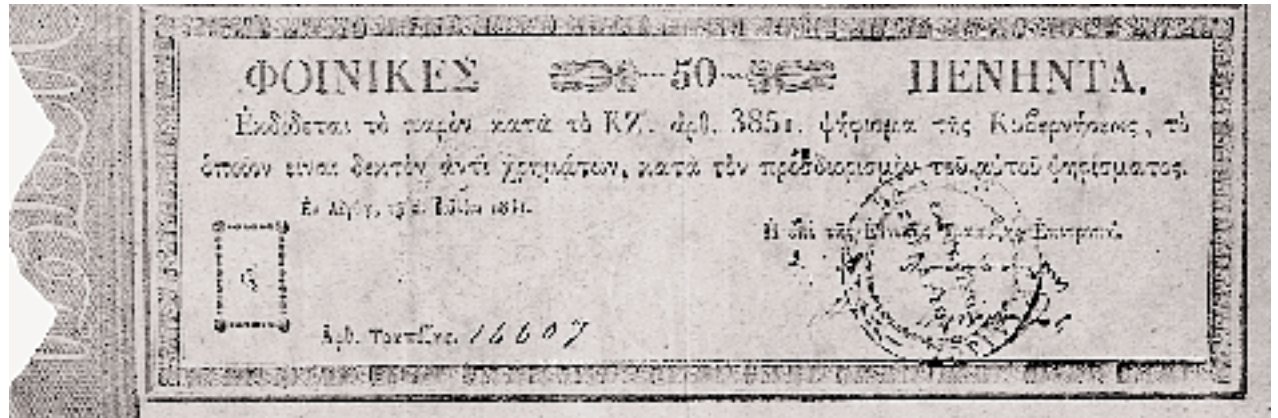 ΦΟΙΝΙΚΕΣ 50 ΠΕΝΗΝΤΑ.
Ἐκδίδεται τὸ παρὸν κατὰ τὸ ΚΖʹ. ἀρθ. 3851. ψήφισμα τῆς Κυβερνήσεως, τὸ
ὁποῖον εἶναι δεκτὸν ἀντὶ χρημάτων, κατὰ τὸν προσδιορισμὸν τοῦ αὐτοῦ ψηφίσματος.
Ἡ ἐπὶ τῆς Ἐθνικῆς Τραπέζης Ἐπιτροπή.
Ἀρθ. 16607